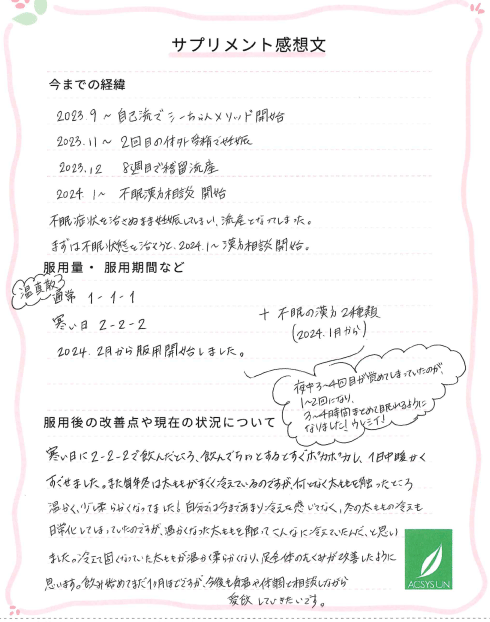 サプリメント感想文
今までの経緯
2023.9～自己流でシーちゃんメソッド開始
2023.11～ 2回目の体外受精で妊娠
2023.12 8週目で稽留流産
2024.1～ 不眠漢方相談 開始
不眠症状を治さぬまま妊娠してしまい、流産となってしまった。
まずは不眠状態を治そうと、2024.1～漢方相談開始。
服用量・服用期間など
温真散
通常 1-1-1
寒い日 2-2-2
2024.2月から服用開始しました。
+ 不眠の漢方2種類
(2024.1月から)
夜中3～4回目が覚めてしまっていたのが、
1～2回になり、
3～4時間まとめて眠れるように
なりました！ウレシイ！
服用後の改善点や現在の状況について
寒い日に2-2-2で飲んだところ、飲んでちょっとするとすぐポカポカし、1日中暖かく
すごせました。また毎年冬は太ももがすごく冷えているのですが、何となく太ももを触ったところ
温かく、少し柔らかくなってました！自分では今まであまり冷えを感じてなく、冬の太ももの冷えも
日常化してしまっていたのですが、温かくなった太ももを触って こんなに冷えていたんだ、と思い
ました。冷えて固くなっていた太ももが温かく柔らかくなり、足全体のむくみが改善したように
思います。飲み始めてまだ1ヶ月ほどですが、今後も自分や体調と相談しながら
愛飲していきたいです。
ACSYS UN